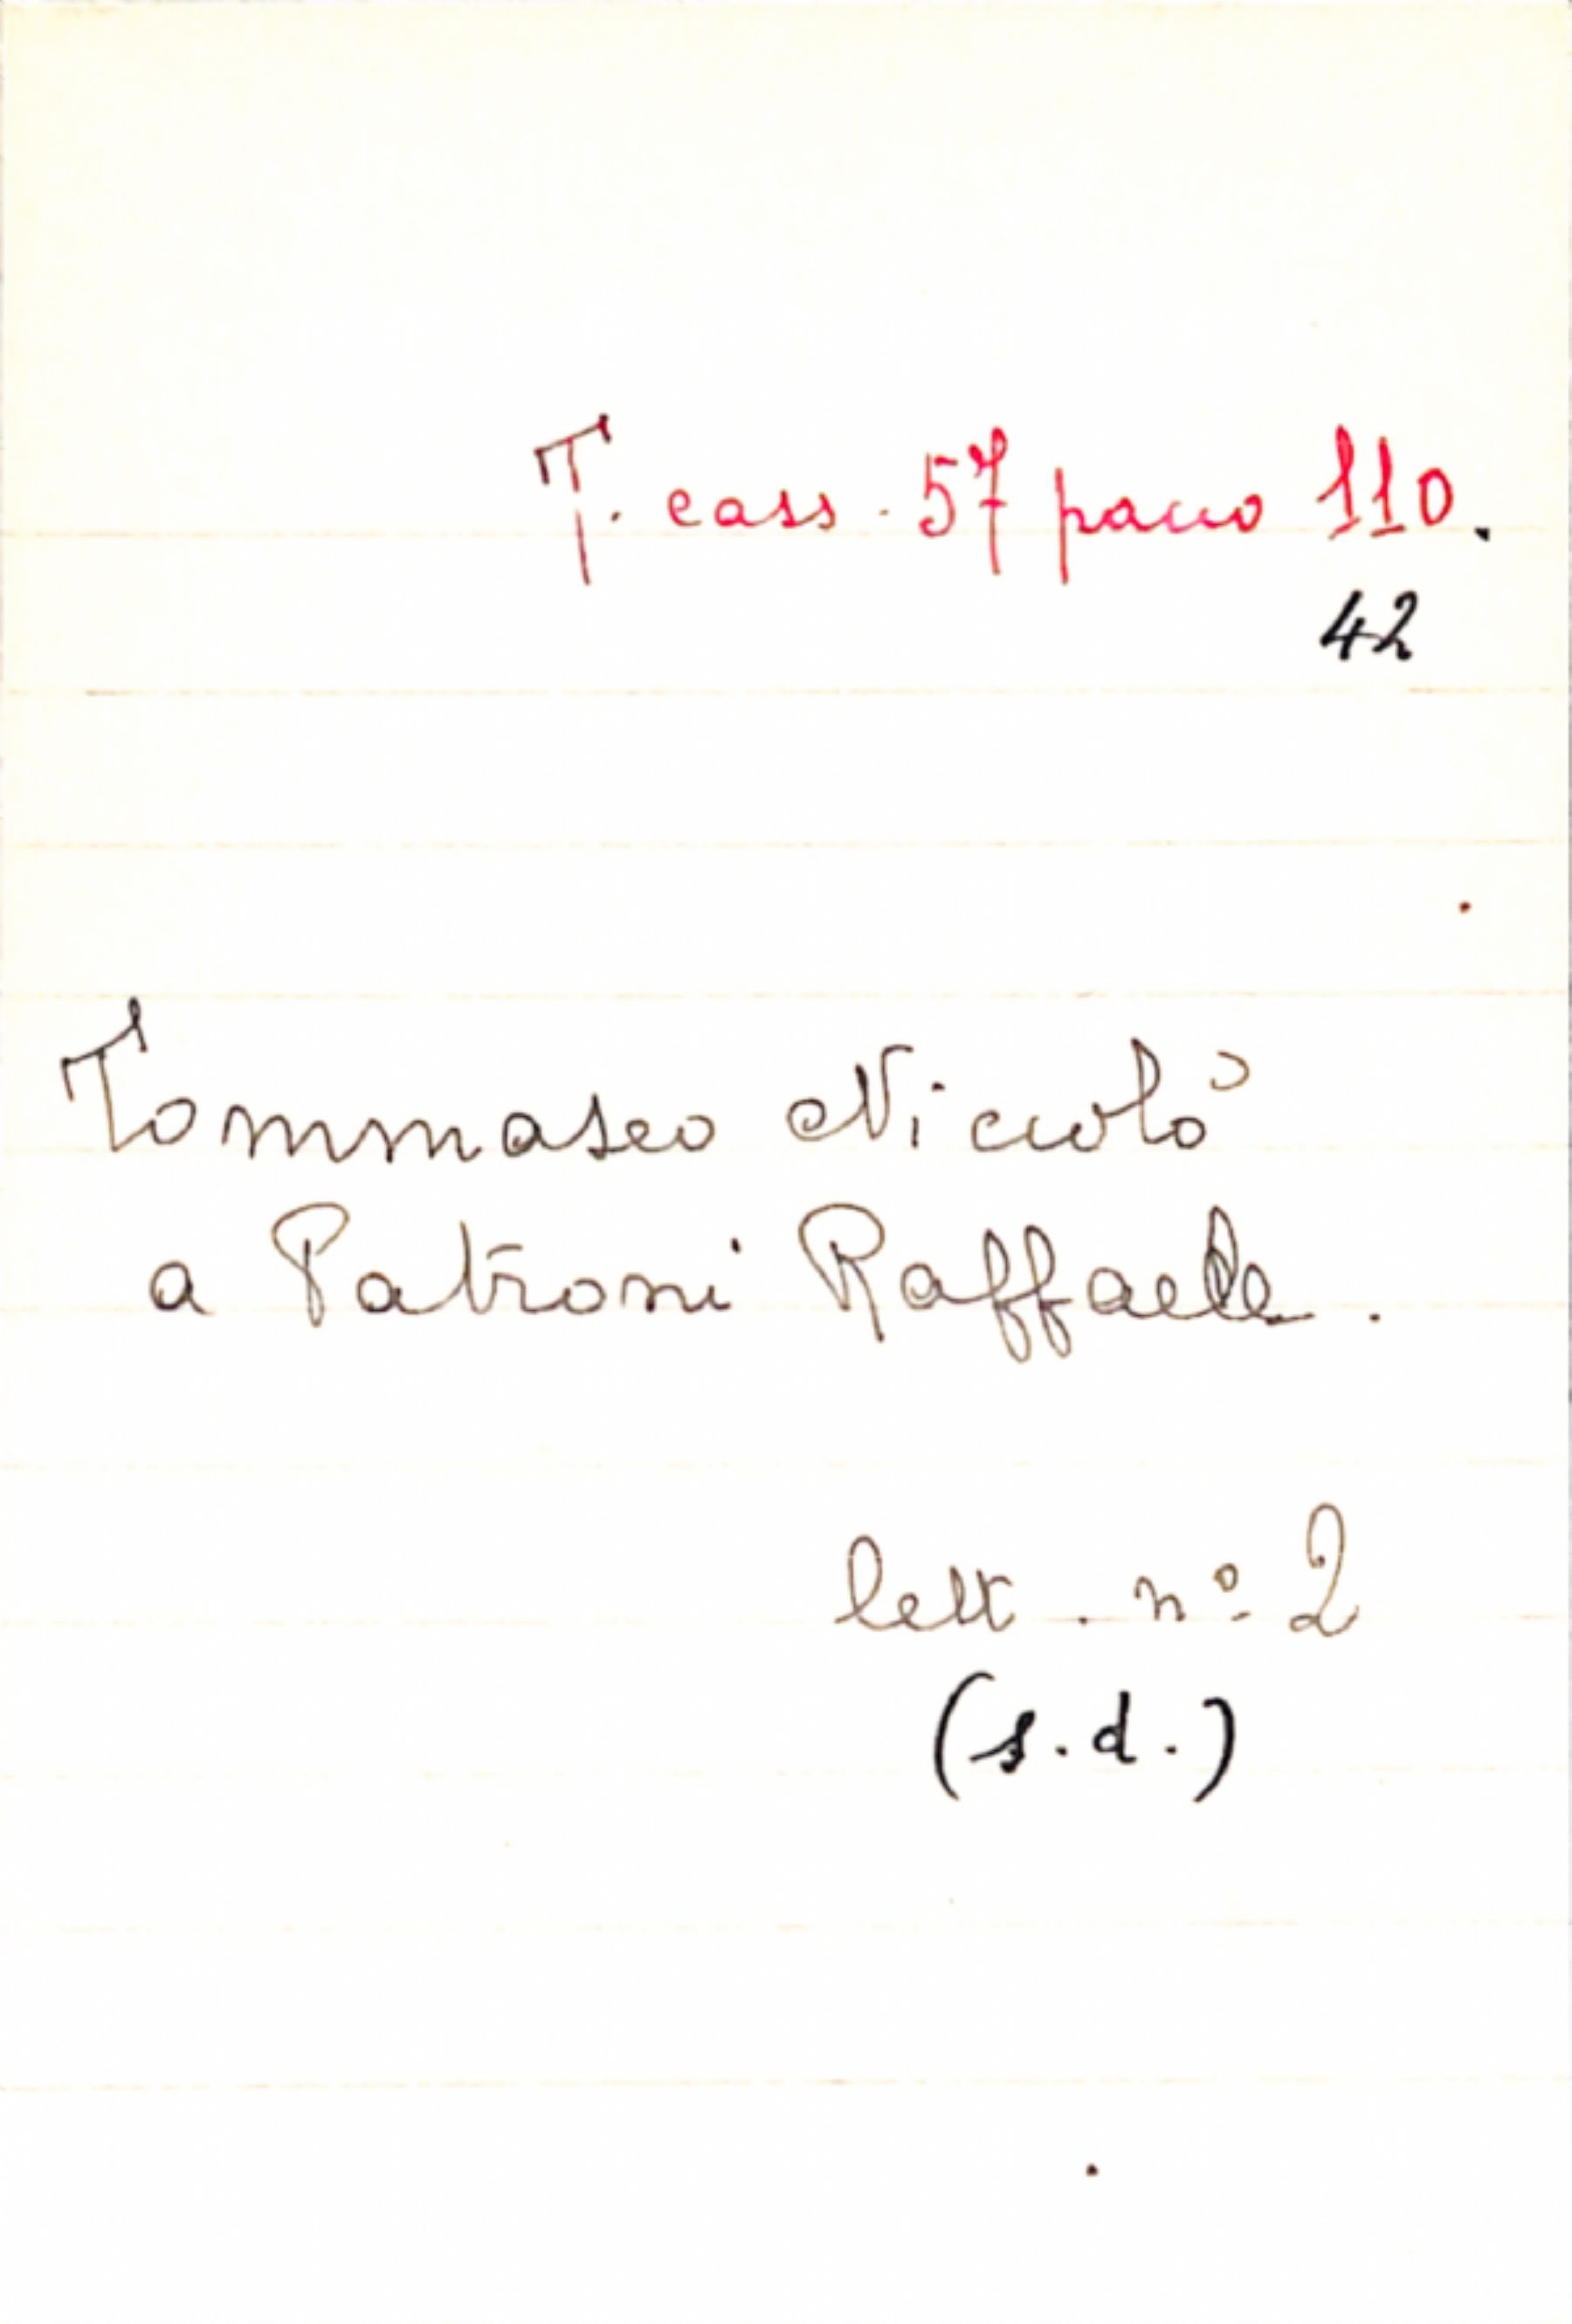 T. cass. 57 pacco 110.
42
Tommaseo Niccolò
a Patroni Raffaele.
lett. nº 2
(s.d.)